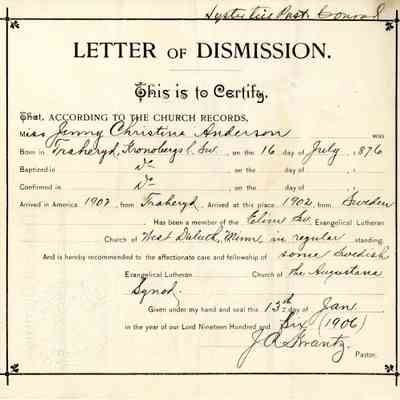 LETTER OF DISMISSION.
This is to Certify,
That, ACCORDING TO THE CHURCH RECORDS,
Miss Jenny Christina Anderson was
Born in Traheryd, Kronobergs l. Sw. on the 16 day of July 1876
Baptized in Do on the day of 1
Confirmed in Do on the day of 1
Arrived in America 1902, from Traheryd. Arrived at this place 1902, from Sweden
Has been a member of the Elim Sw. Evangelical Lutheran
Church of West Duluth, Minn, in regular standing,
And is hereby recommended to the affectionate care and fellowship of some Swedish
Evangelical Lutheran Church of the Augustana
Synod.
Given under my hand and seal this 13th day of Jan.
in the year of our Lord Nineteen Hundred and Six (1906)
J.A. Krantz.
Pastor.